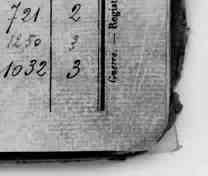 721 2
1250 3
1032 3
Guerre. — Regist